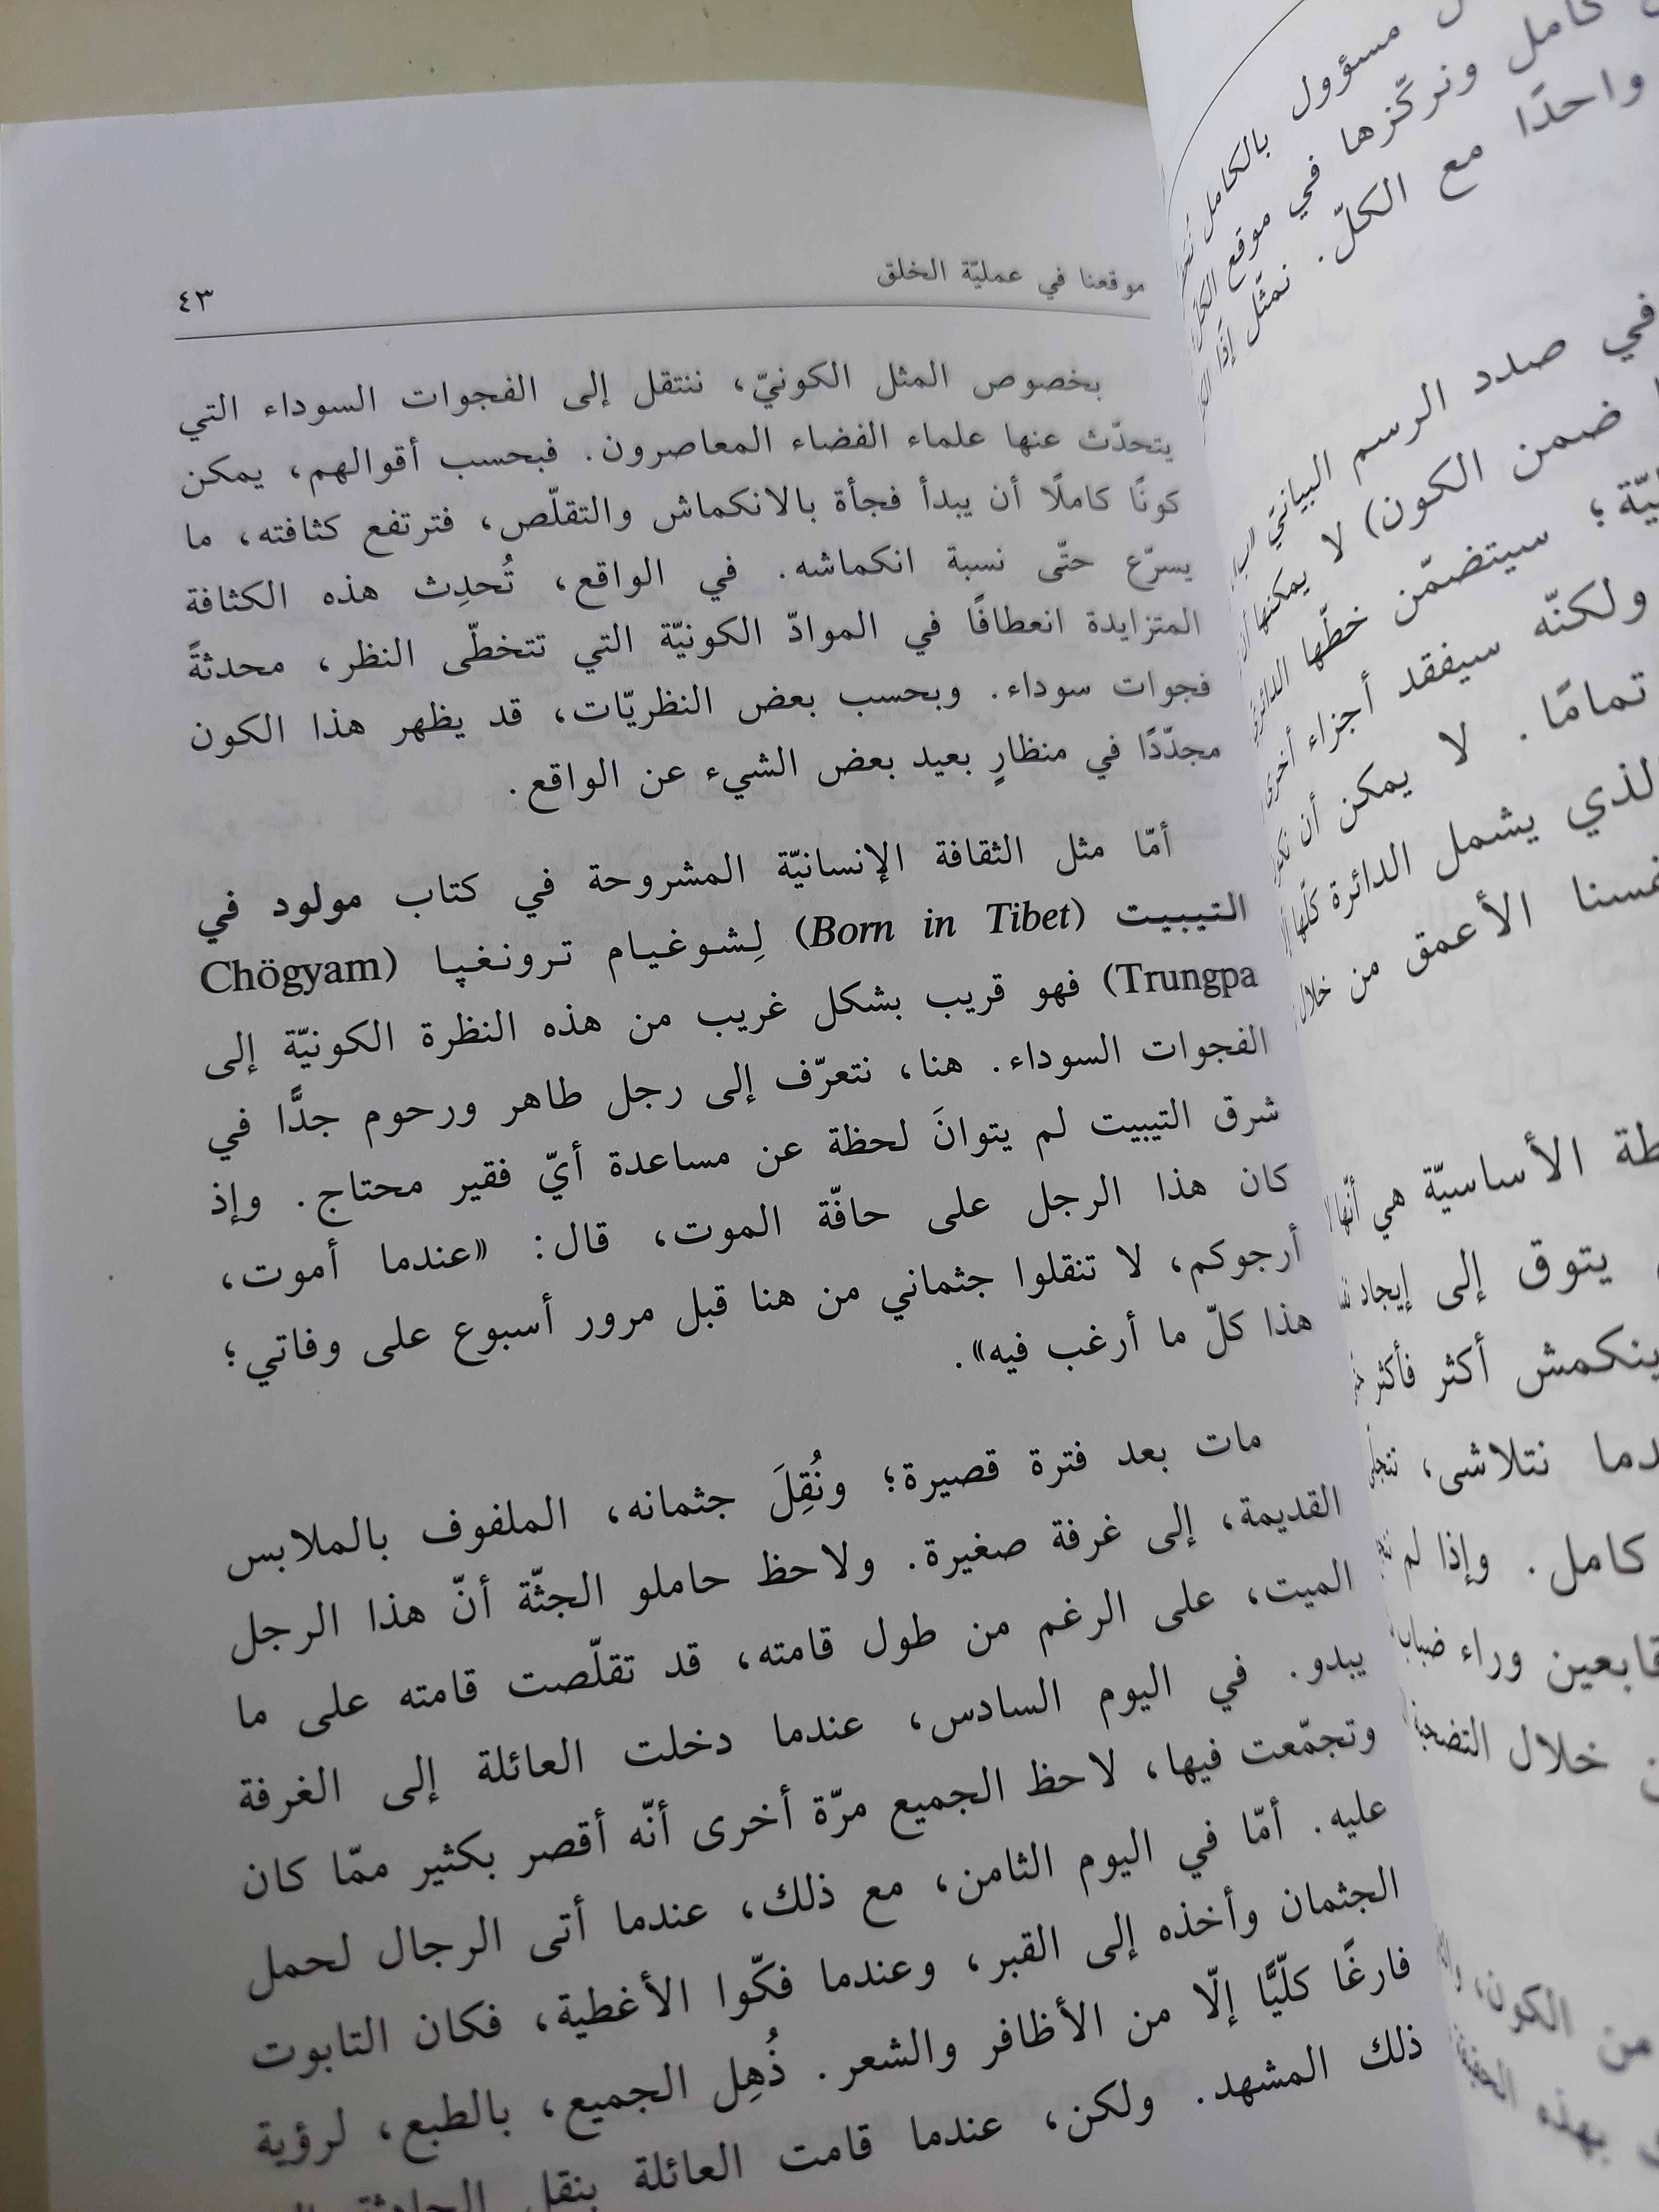 موقعنا في عمليّة الخلق
٤٣
بخصوص المثل الكونيّ، ننتقل إلى الفجوات السوداء التي
يتحدّث عنها علماء الفضاء المعاصرون. فبحسب أقوالهم، يمكن
كونًا كاملًا أن يبدأ فجأة بالانكماش والتقلّص، فترتفع كثافته، ما
يسرّع حتّى نسبة انكماشه. في الواقع، تُحدِث هذه الكثافة
المتزايدة انعطافًا في الموادّ الكونيّة التي تتخطّى النظر، محدثةً
فجوات سوداء. وبحسب بعض النظريّات، قد يظهر هذا الكون
مجدّدًا في منظارٍ بعيد بعض الشيء عن الواقع.
أمّا مثل الثقافة الإنسانيّة المشروحة في كتاب مولود في
التيبيت (Born in Tibet) لِشوغيام ترونغپا (Chögyam
Trungpa) فهو قريب بشكل غريب من هذه النظرة الكونيّة إلى
الفجوات السوداء. هنا، نتعرّف إلى رجل طاهر ورحوم جدًّا في
شرق التيبيت لم يتوانَ لحظة عن مساعدة أيّ فقير محتاج. وإذ
كان هذا الرجل على حافّة الموت، قال: «عندما أموت،
أرجوكم، لا تنقلوا جثماني من هنا قبل مرور أسبوع على وفاتي؛
هذا كلّ ما أرغب فيه».
مات بعد فترة قصيرة؛ ونُقِلَ جثمانه، الملفوف بالملابس
القديمة، إلى غرفة صغيرة. ولاحظ حاملو الجثّة أنّ هذا الرجل
الميت، على الرغم من طول قامته، قد تقلّصت قامته على ما
يبدو. في اليوم السادس، عندما دخلت العائلة إلى الغرفة
وتجمّعت فيها، لاحظ الجميع مرّة أخرى أنّه أقصر بكثير ممّا كان
عليه. أمّا في اليوم الثامن، مع ذلك، عندما أتى الرجال لحمل
الجثمان وأخذه إلى القبر، وعندما فكّوا الأغطية، فكان التابوت
فارغًا كلّيًّا إلّا من الأظافر والشعر. ذُهِل الجميع، بالطبع، لرؤية
ذلك المشهد. ولكن، عندما قامت العائلة بنقل الحادثة
مسؤول بالكامل
كامل ونركّزها في موقع
واحدًا مع الكلّ. نمثّل إذًا
في صدد الرسم البيانيّ
ضمن الكون) لا يمكنها أن
سيتضمّن خطّها
ولكنّه سيفقد أجزاء أخرى
تمامًا. لا يمكن أن
الذي يشمل الدائرة كلّها
الأعمق من خلال
الأساسيّة هي أنّها
يتوق إلى إيجاد
ينكمش أكثر فأكثر
نتلاشى،
كامل. وإذا لم
قابعين وراء
خلال التضحية
من الكون،
بهذه